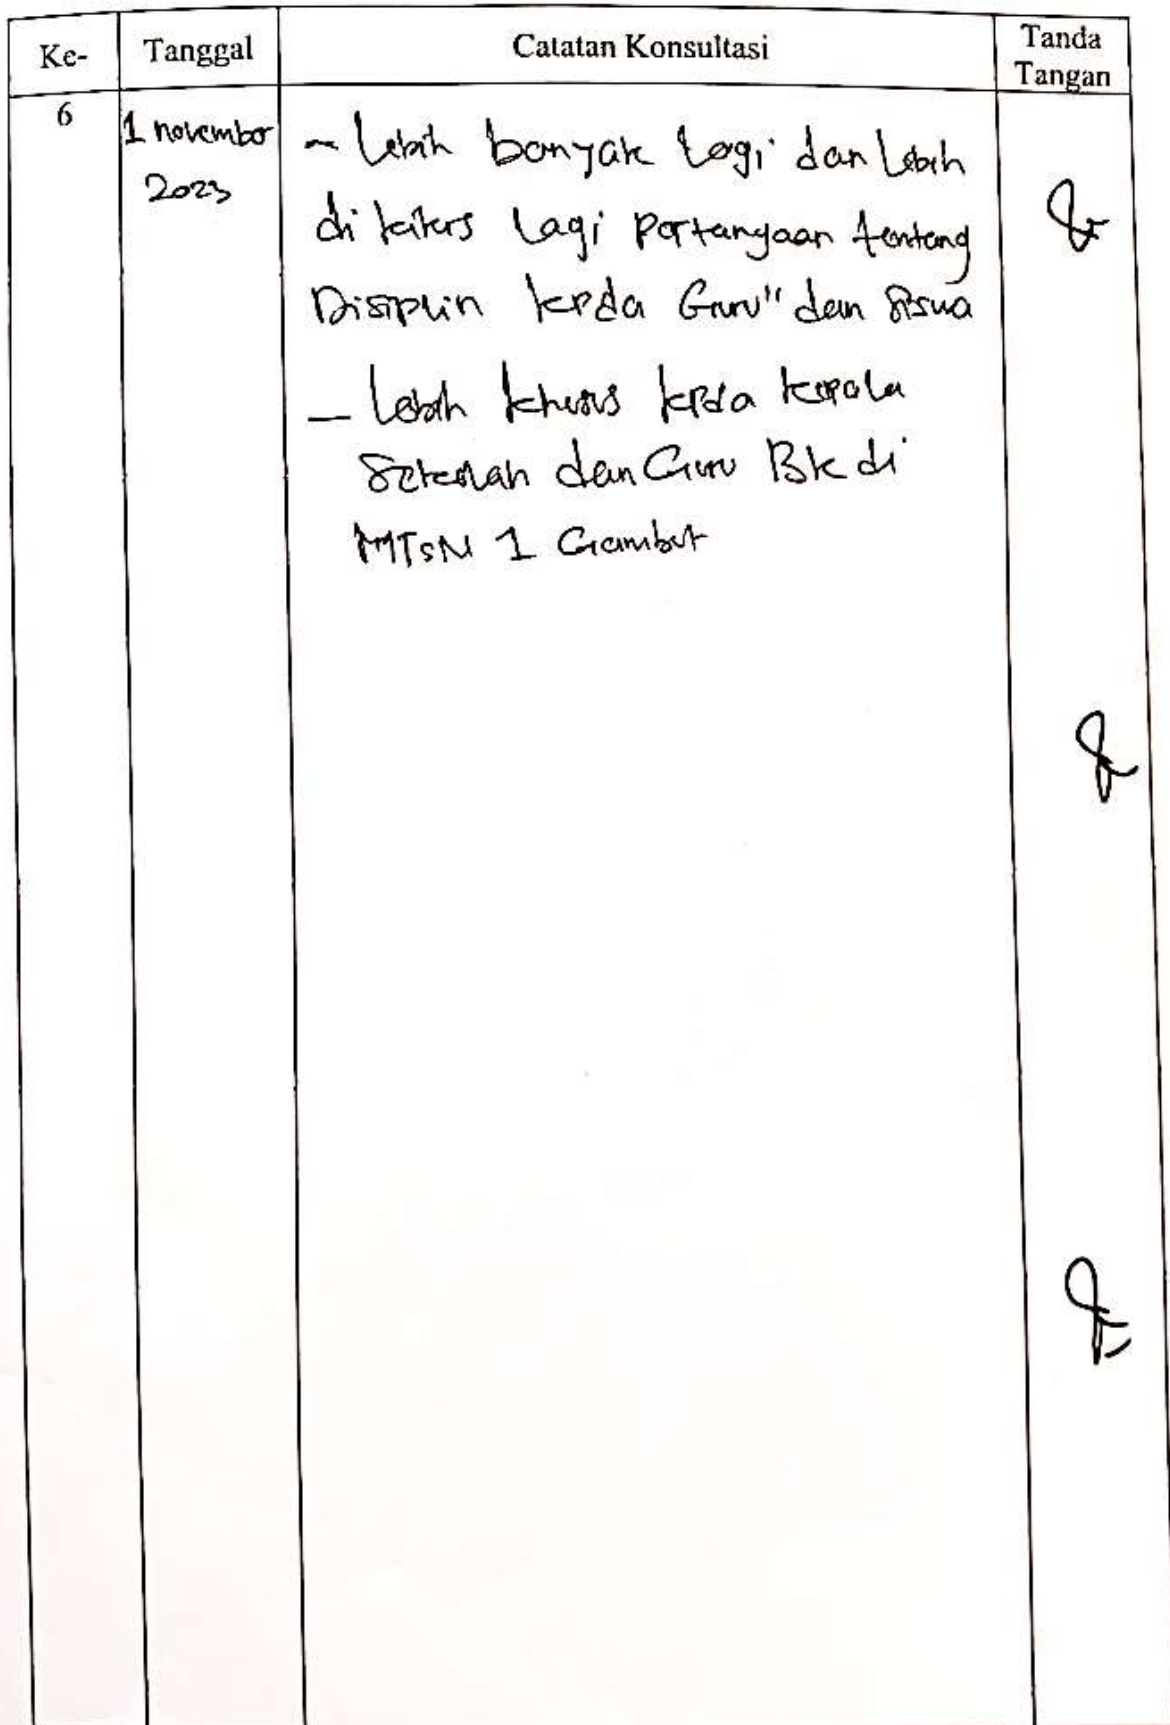 Ke- Tanggal Catatan Konsultasi Tanda Tangan
6 1 november 2023
- Lebih banyak Lagi dan Lebih
di Lagi Pertanyaan tentang
Disiplin kpda Guru" dan Siswa
- Lebih khusus kpda kepala
Sekolah dan Guru Bk di
MTsN 1 Gambut